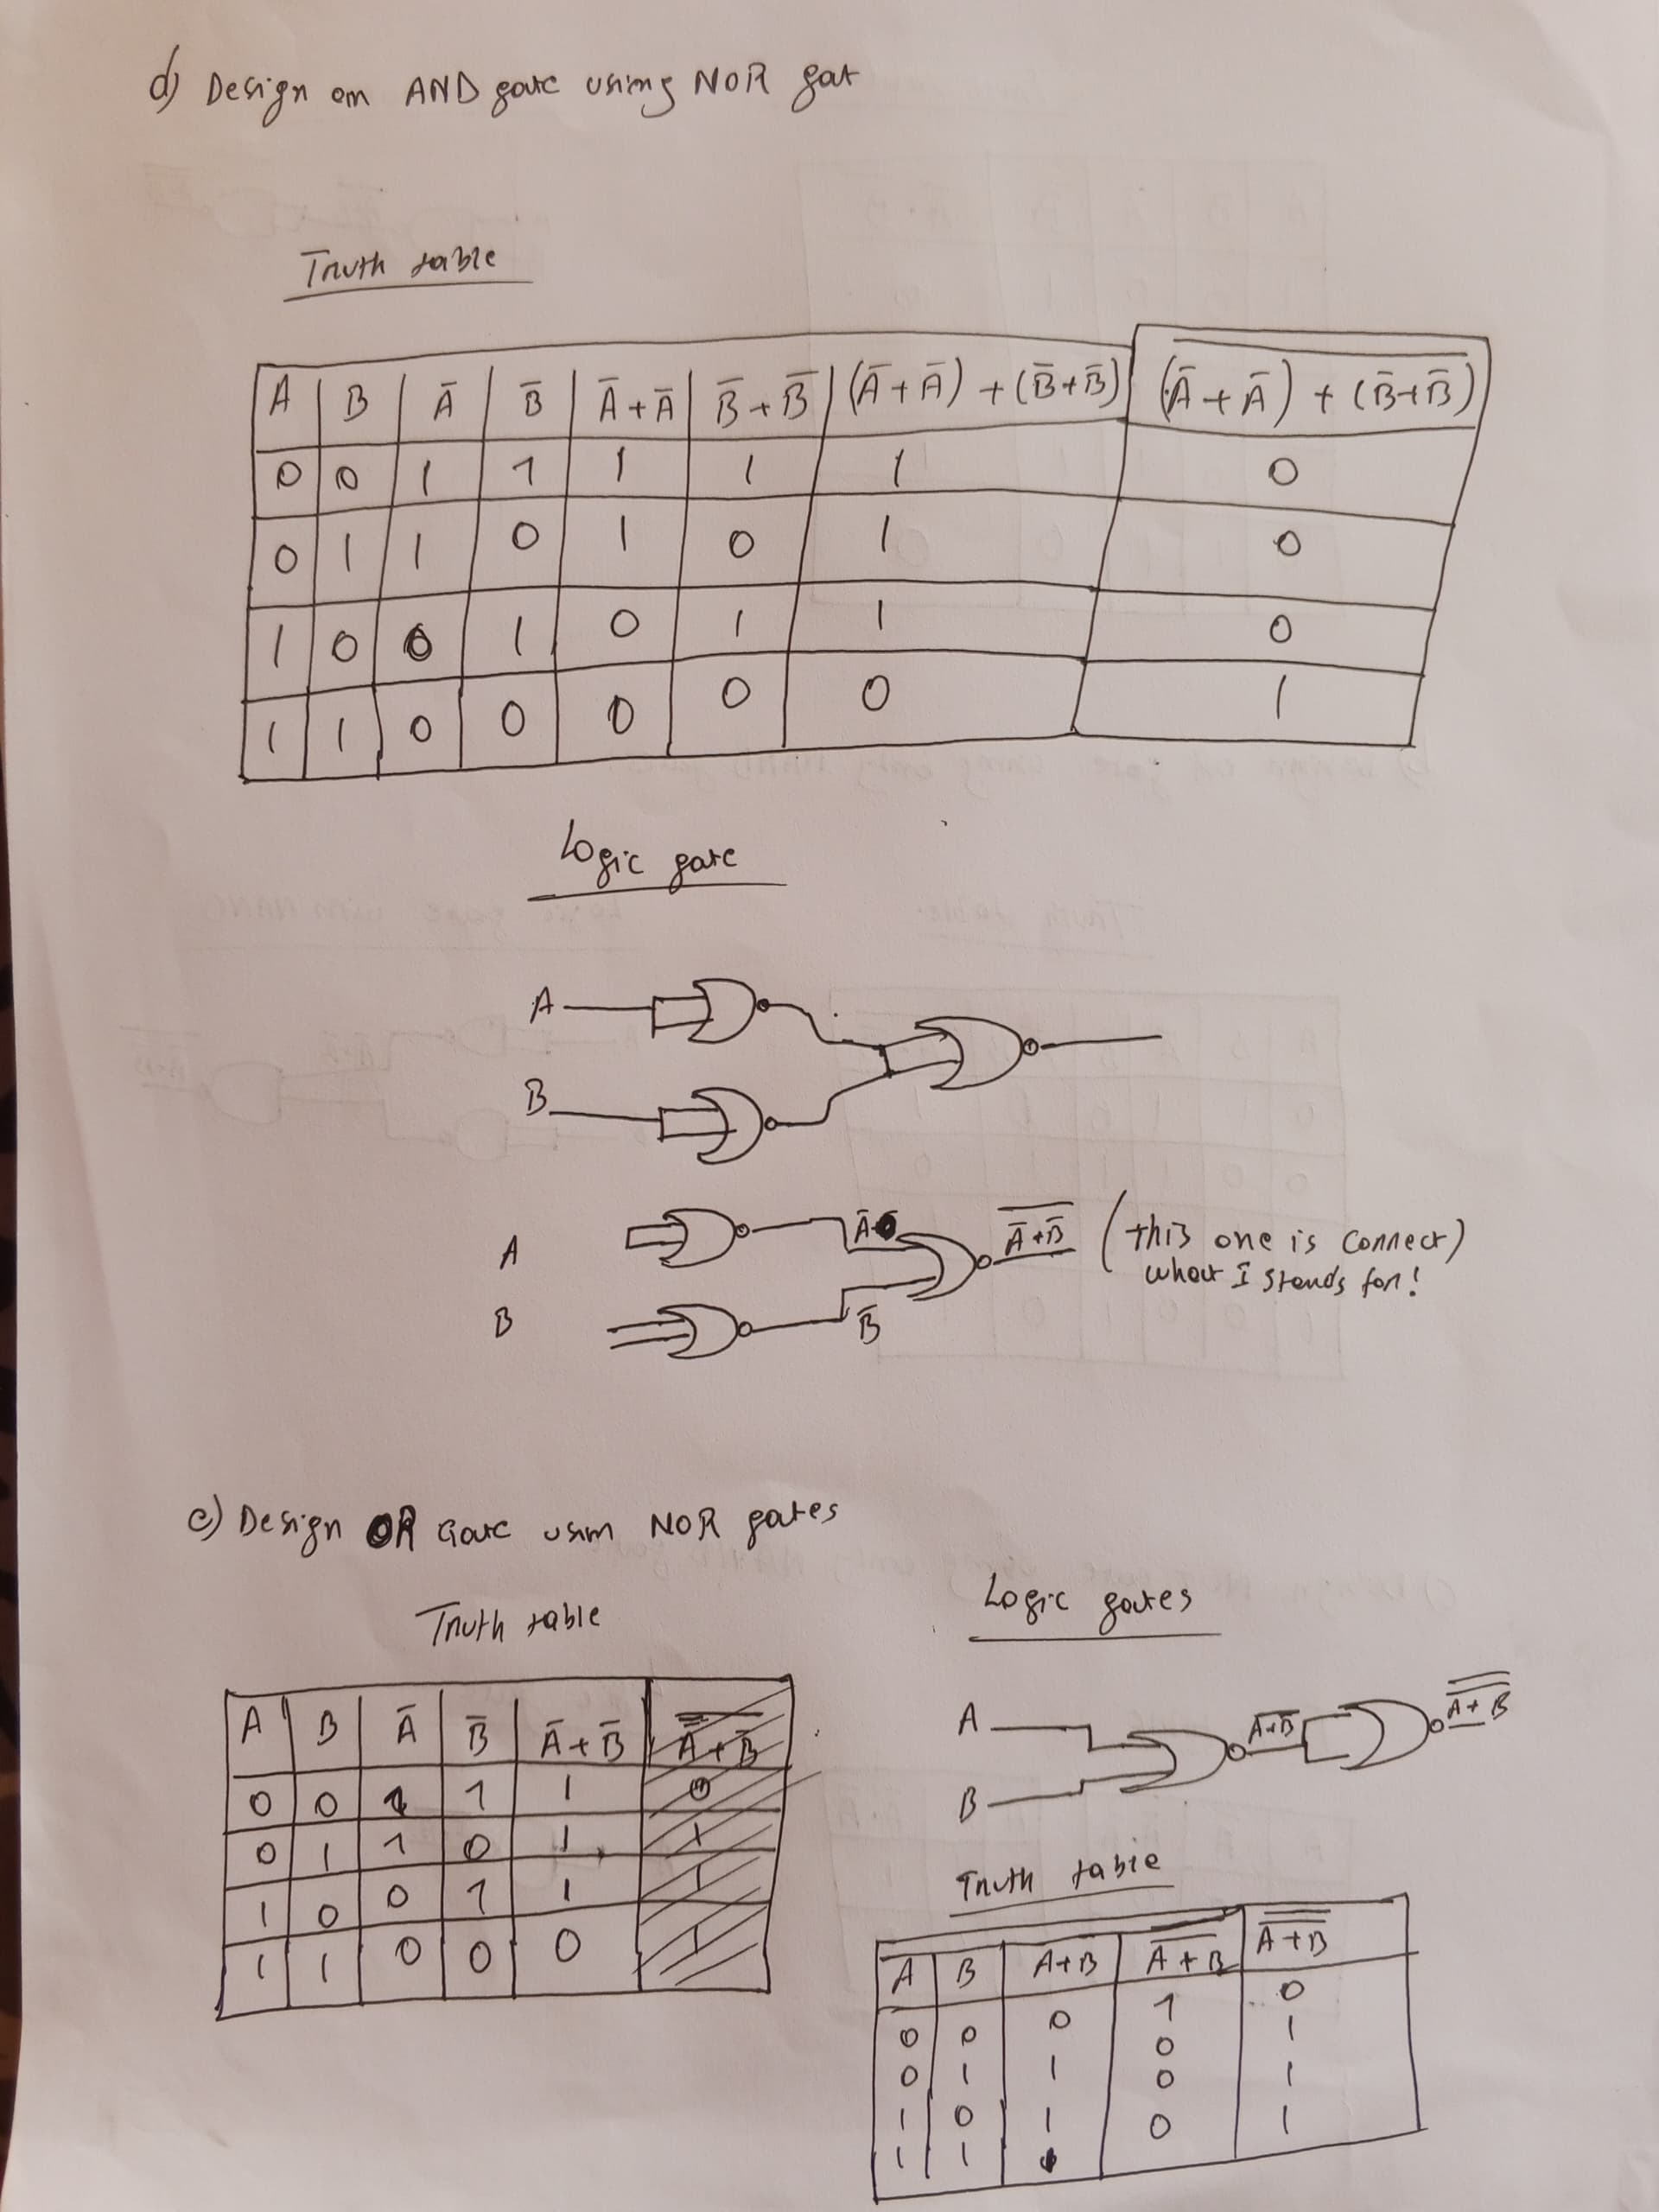 d) Design an AND gate using NOR gat
Truth table
A B Ā B̄ Ā+Ā B̄+B̄ (Ā+Ā) + (B̄+B̄) \overline{(Ā+Ā) + (B̄+B̄)}
0 0 1 1 1 1 1 0
0 1 1 0 1 0 1 0
1 0 0 1 0 1 1 0
1 1 0 0 0 0 0 1
Logic gate
A
B
A Ā \overline{Ā+B̄} (this one is correct)
what I stands for!
B B̄
e) Design OR Gate usin NOR gates
Logic gates
Truth table
A B Ā B̄ Ā+B̄
0 0 1 1 1 0
0 1 1 0 1 1
1 0 0 1 1 1
1 1 0 0 0 1
A \overline{A+B} \overline{\overline{A+B}}
B
Truth table
A B A+B \overline{A+B} \overline{\overline{A+B}}
0 0 0 1 0
0 1 1 0 1
1 0 1 0 1
1 1 1 0 1